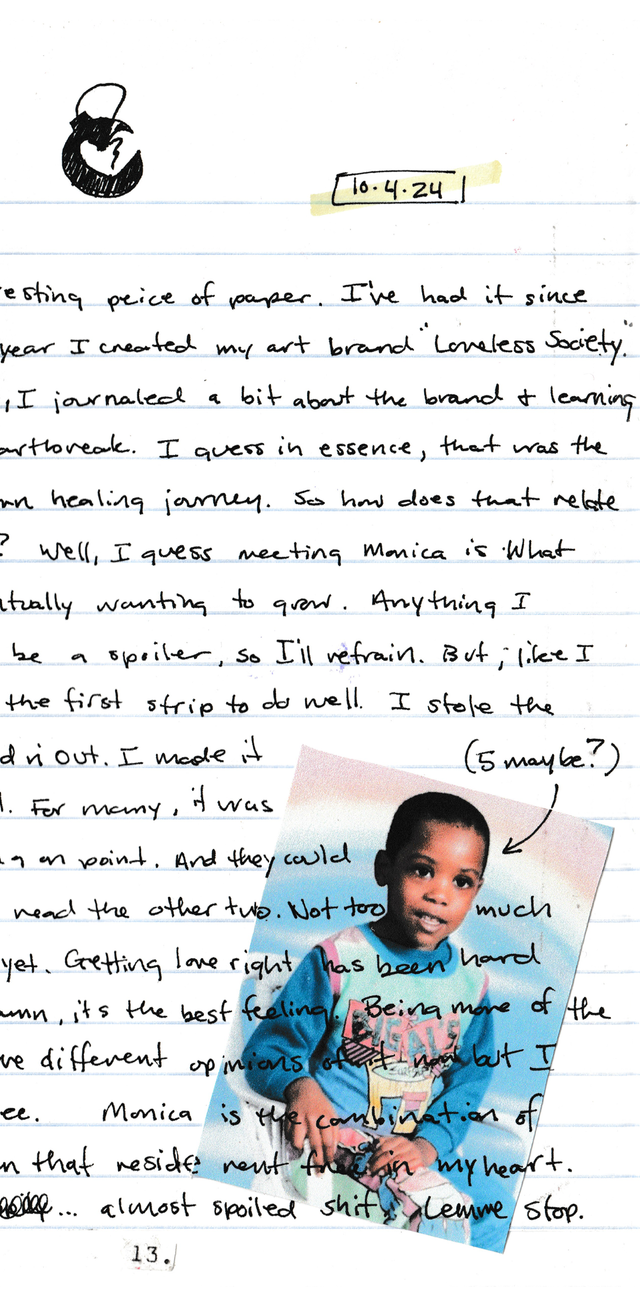 10.4.24
esting peice of paper. I've had it since
year I created my art brand "Loveless Society."
, I journaled a bit about the brand & learning
artbreak. I guess in essence, that was the
wn healing journey. So how does that relate
? Well, I guess meeting Monica is what
tually wanting to grow. Anything I
be a spoiler, so I'll refrain. But, like I
the first strip to do well. I stole the
d it out. I made it
(5 maybe?)
l. For many, it was
g on point. And they could
read the other two. Not too much
yet. Getting love right has been hard
umn, it's the best feeling. Being more of the
ve different opinions of it now but I
ee. Monica is the combination of
n that reside rent free in my heart.
... almost spoiled shit. Lemme stop.
13.